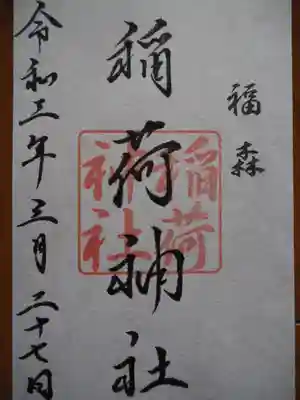 福森
稲荷神社
稲荷
神社
令和三年三月二十七日